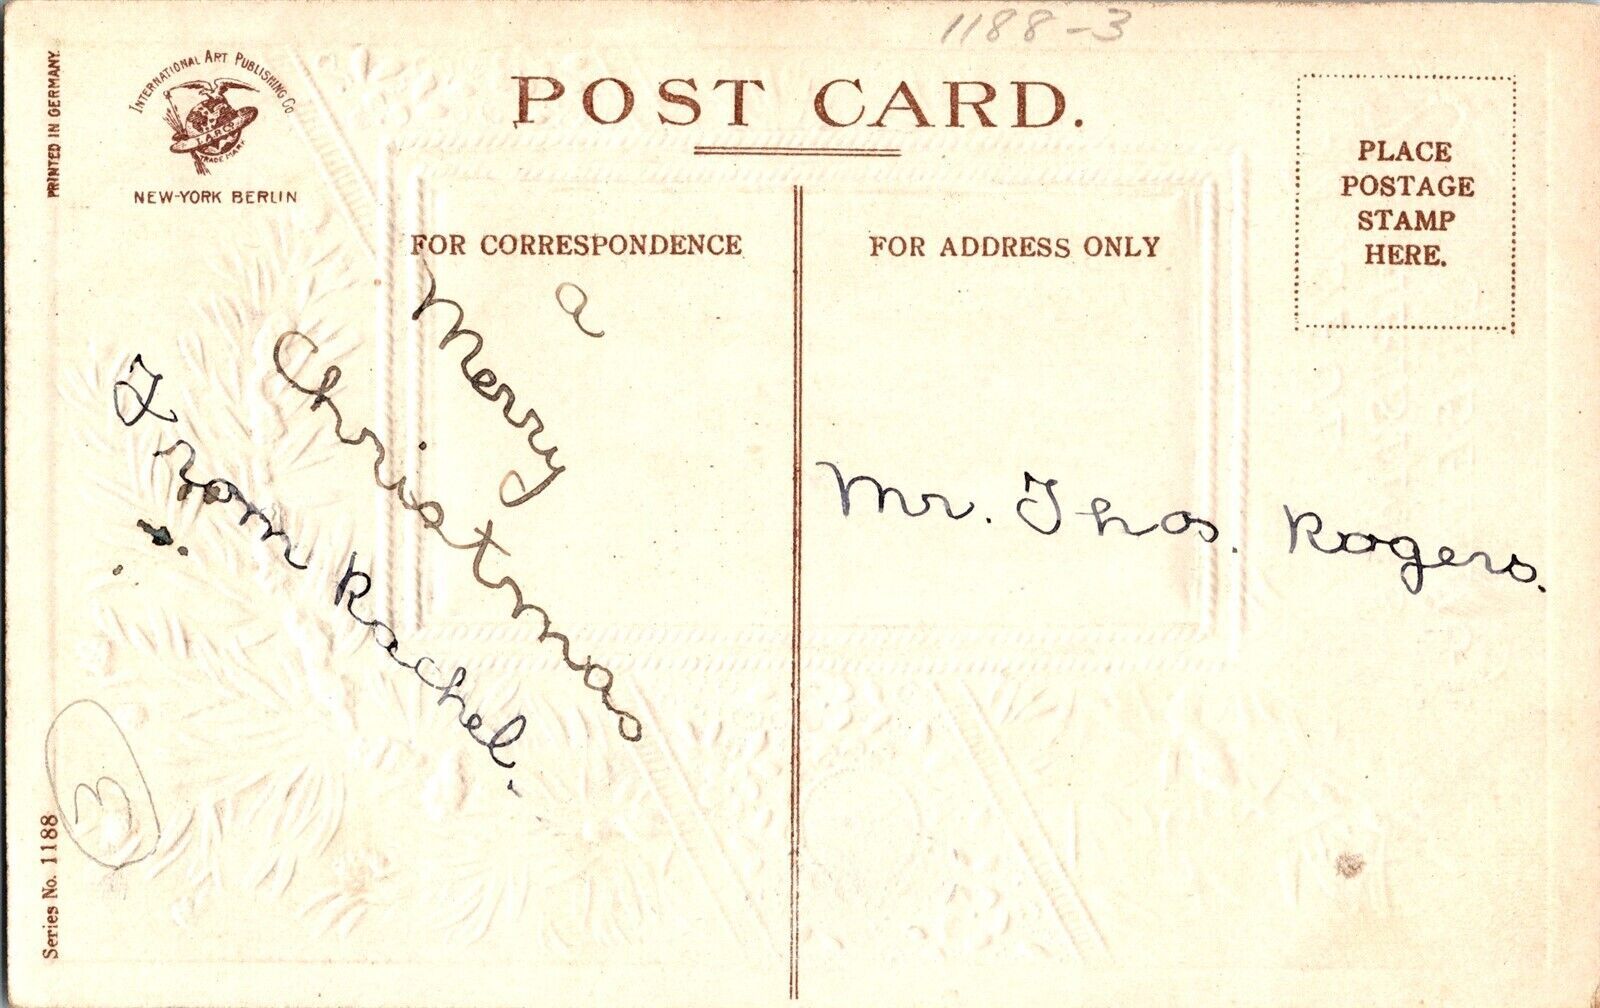 1188-3
PRINTED IN GERMANY.
INTERNATIONAL ART PUBLISHING CO
I.A.P.CO.
TRADE MARK
NEW-YORK BERLIN
POST CARD.
PLACE
POSTAGE
STAMP
HERE.
FOR CORRESPONDENCE
FOR ADDRESS ONLY
a
Merry
Christmas
From Rachel.
Mr. Thos. Rogers.
3
Series No. 1188